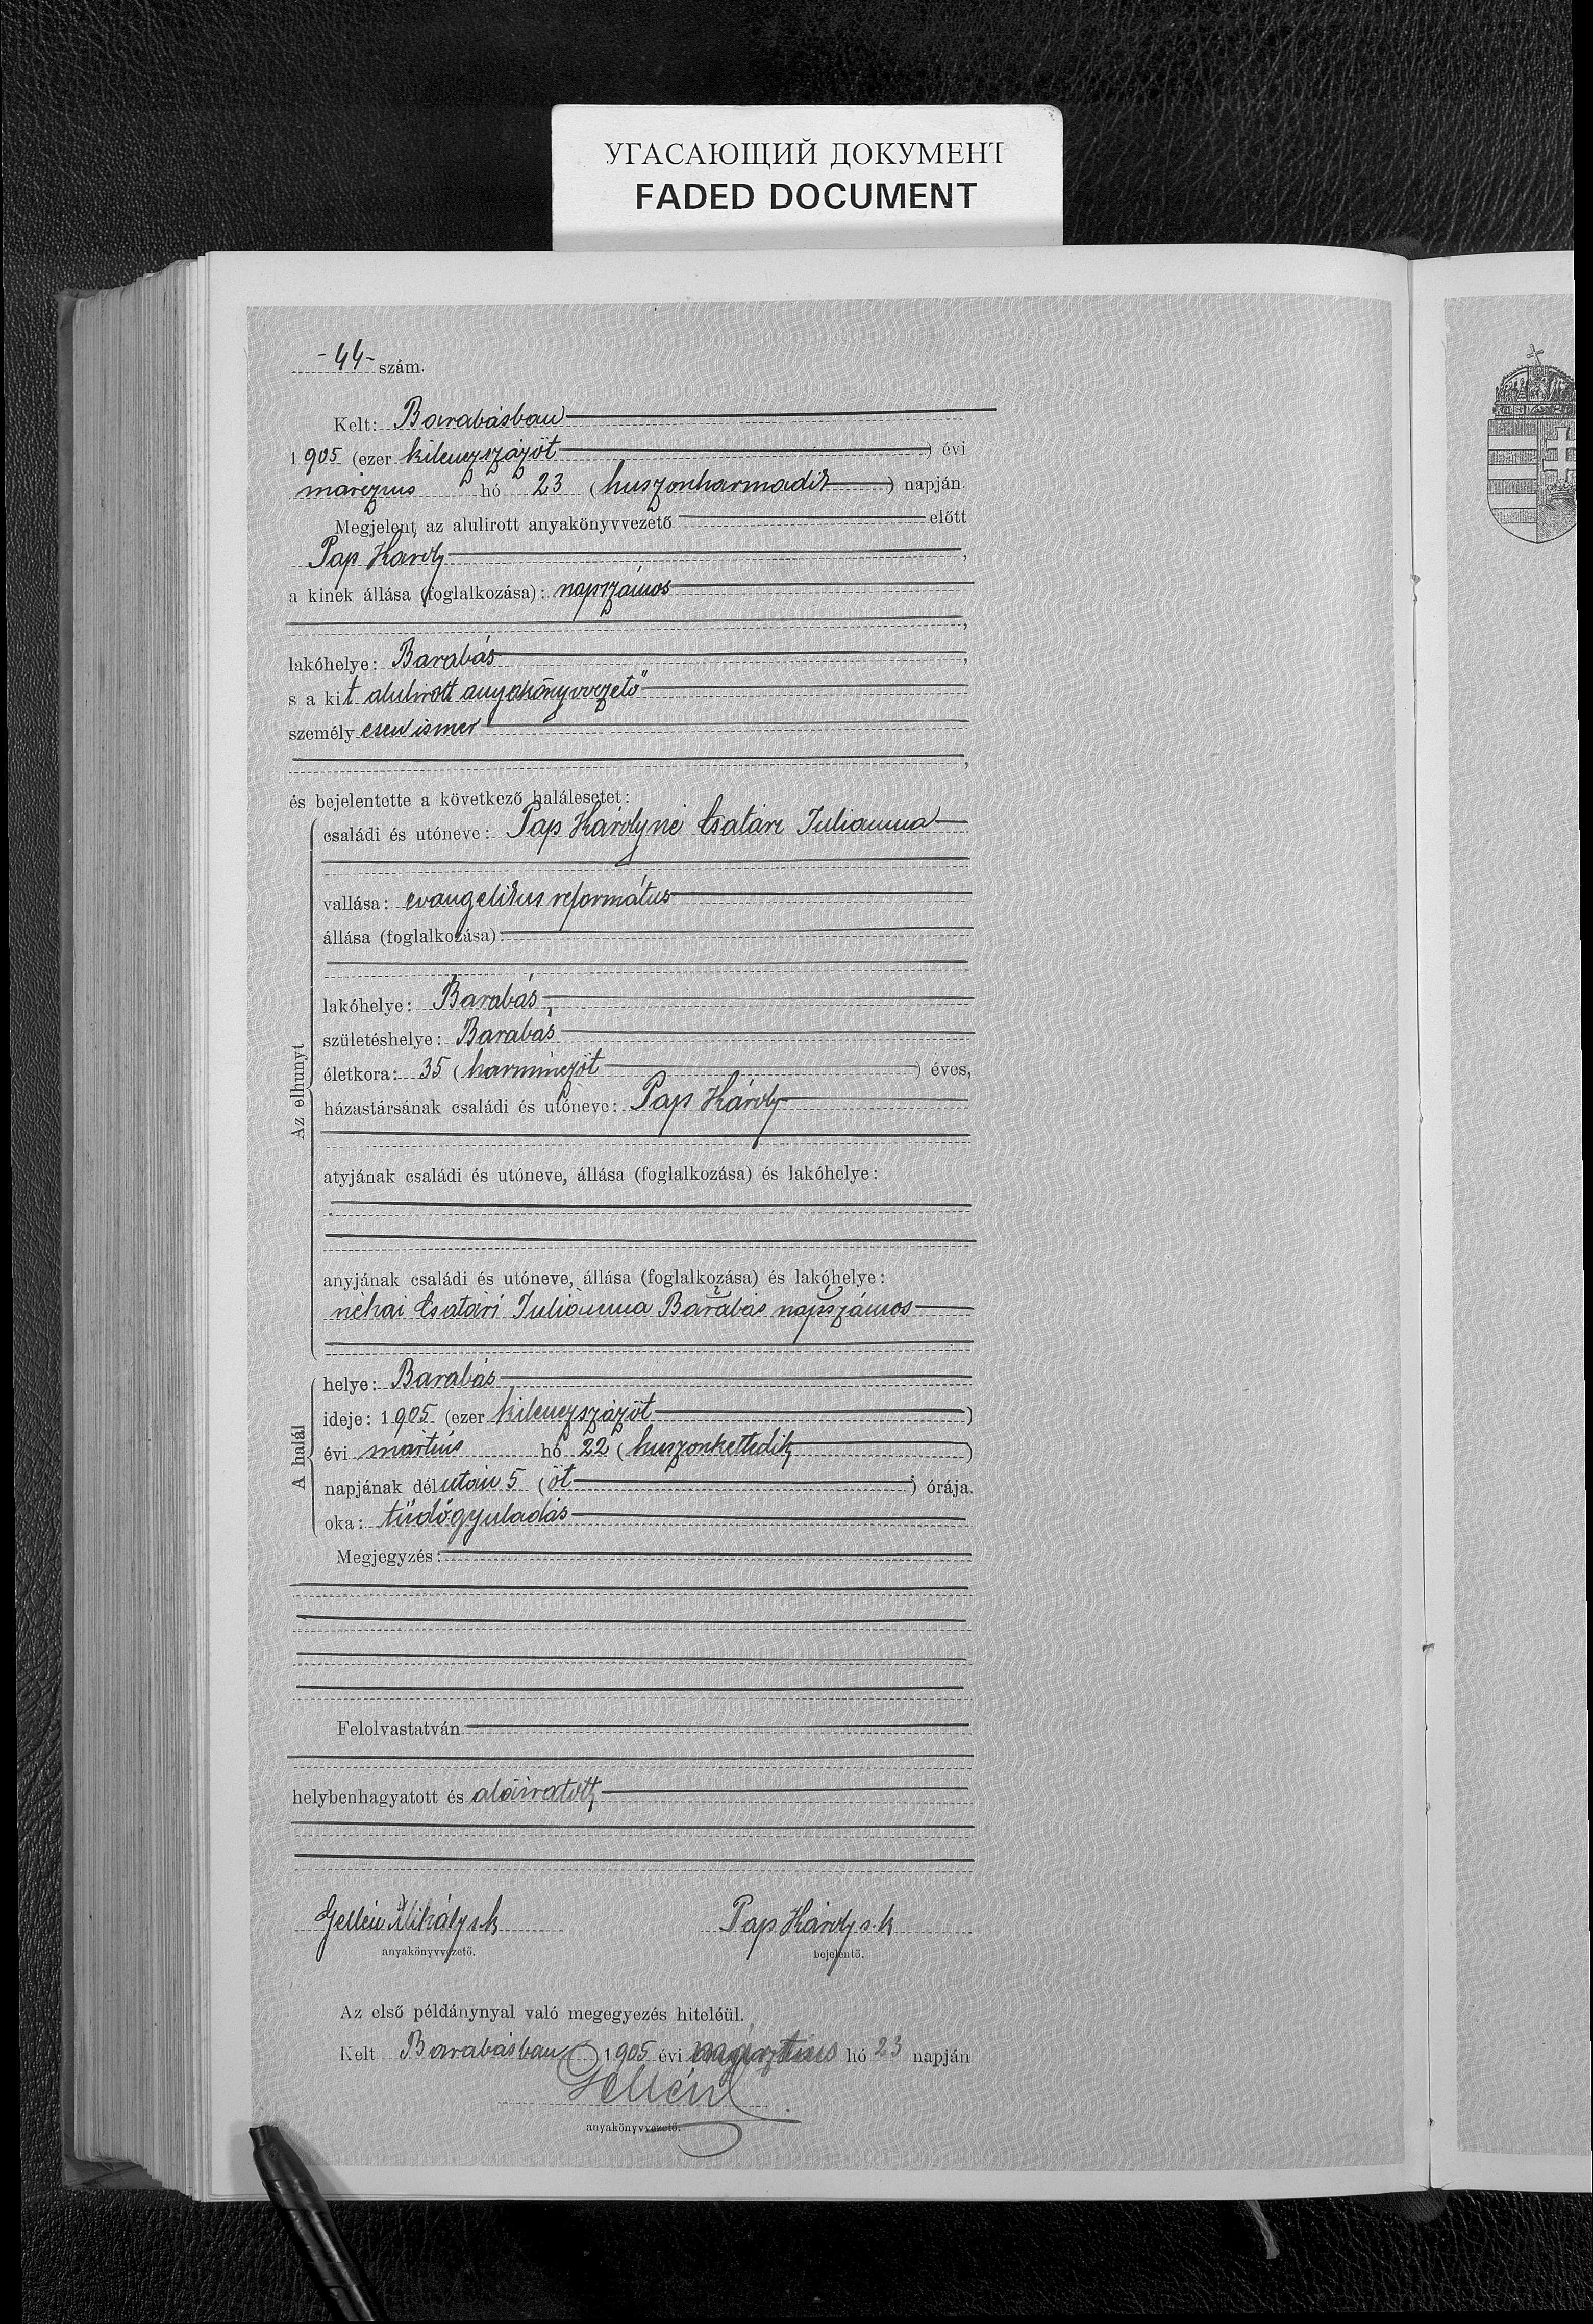 УГАСАЮЩИЙ ДОКУМЕНТ
FADED DOCUMENT
-44- szám.
Kelt: Barabásban
1905 (ezer kilenczszázöt) évi
márczius hó 23 (huszonharmadik) napján.
Megjelent az alulirott anyakönyvvezető előtt
Pap Károly,
a kinek állása (foglalkozása): napszámos
,
lakóhelye: Barabás,
s a kit alulirott anyakönyvvezető
személyesen ismer
,
és bejelentette a következő halálesetet:
Az elhunyt
családi és utóneve: Pap Károlyné Csatári Julianna
vallása: evangelikus református
állása (foglalkozása):
lakóhelye: Barabás,
születéshelye: Barabás
életkora: 35 (harminczöt) éves,
házastársának családi és utóneve: Pap Károly
atyjának családi és utóneve, állása (foglalkozása) és lakóhelye:
anyjának családi és utóneve, állása (foglalkozása) és lakóhelye:
néhai Csatári Julianna Barabás napszámos
A halál
helye: Barabás
ideje: 1905 (ezer kilenczszázöt)
évi martius hó 22 (huszonkettedik)
napjának délután 5 (öt) órája.
oka: tüdőgyuladás
Megjegyzés:
Felolvastatván
helybenhagyatott és aláiratott
Gellén Mihály s.k Pap Károly s.k
anyakönyvvezető. bejelentő.
Az első példánynyal való megegyezés hiteléül.
Kelt Barabásban 1905 évi hó 23 napján
Gellén
anyakönyvvezető.